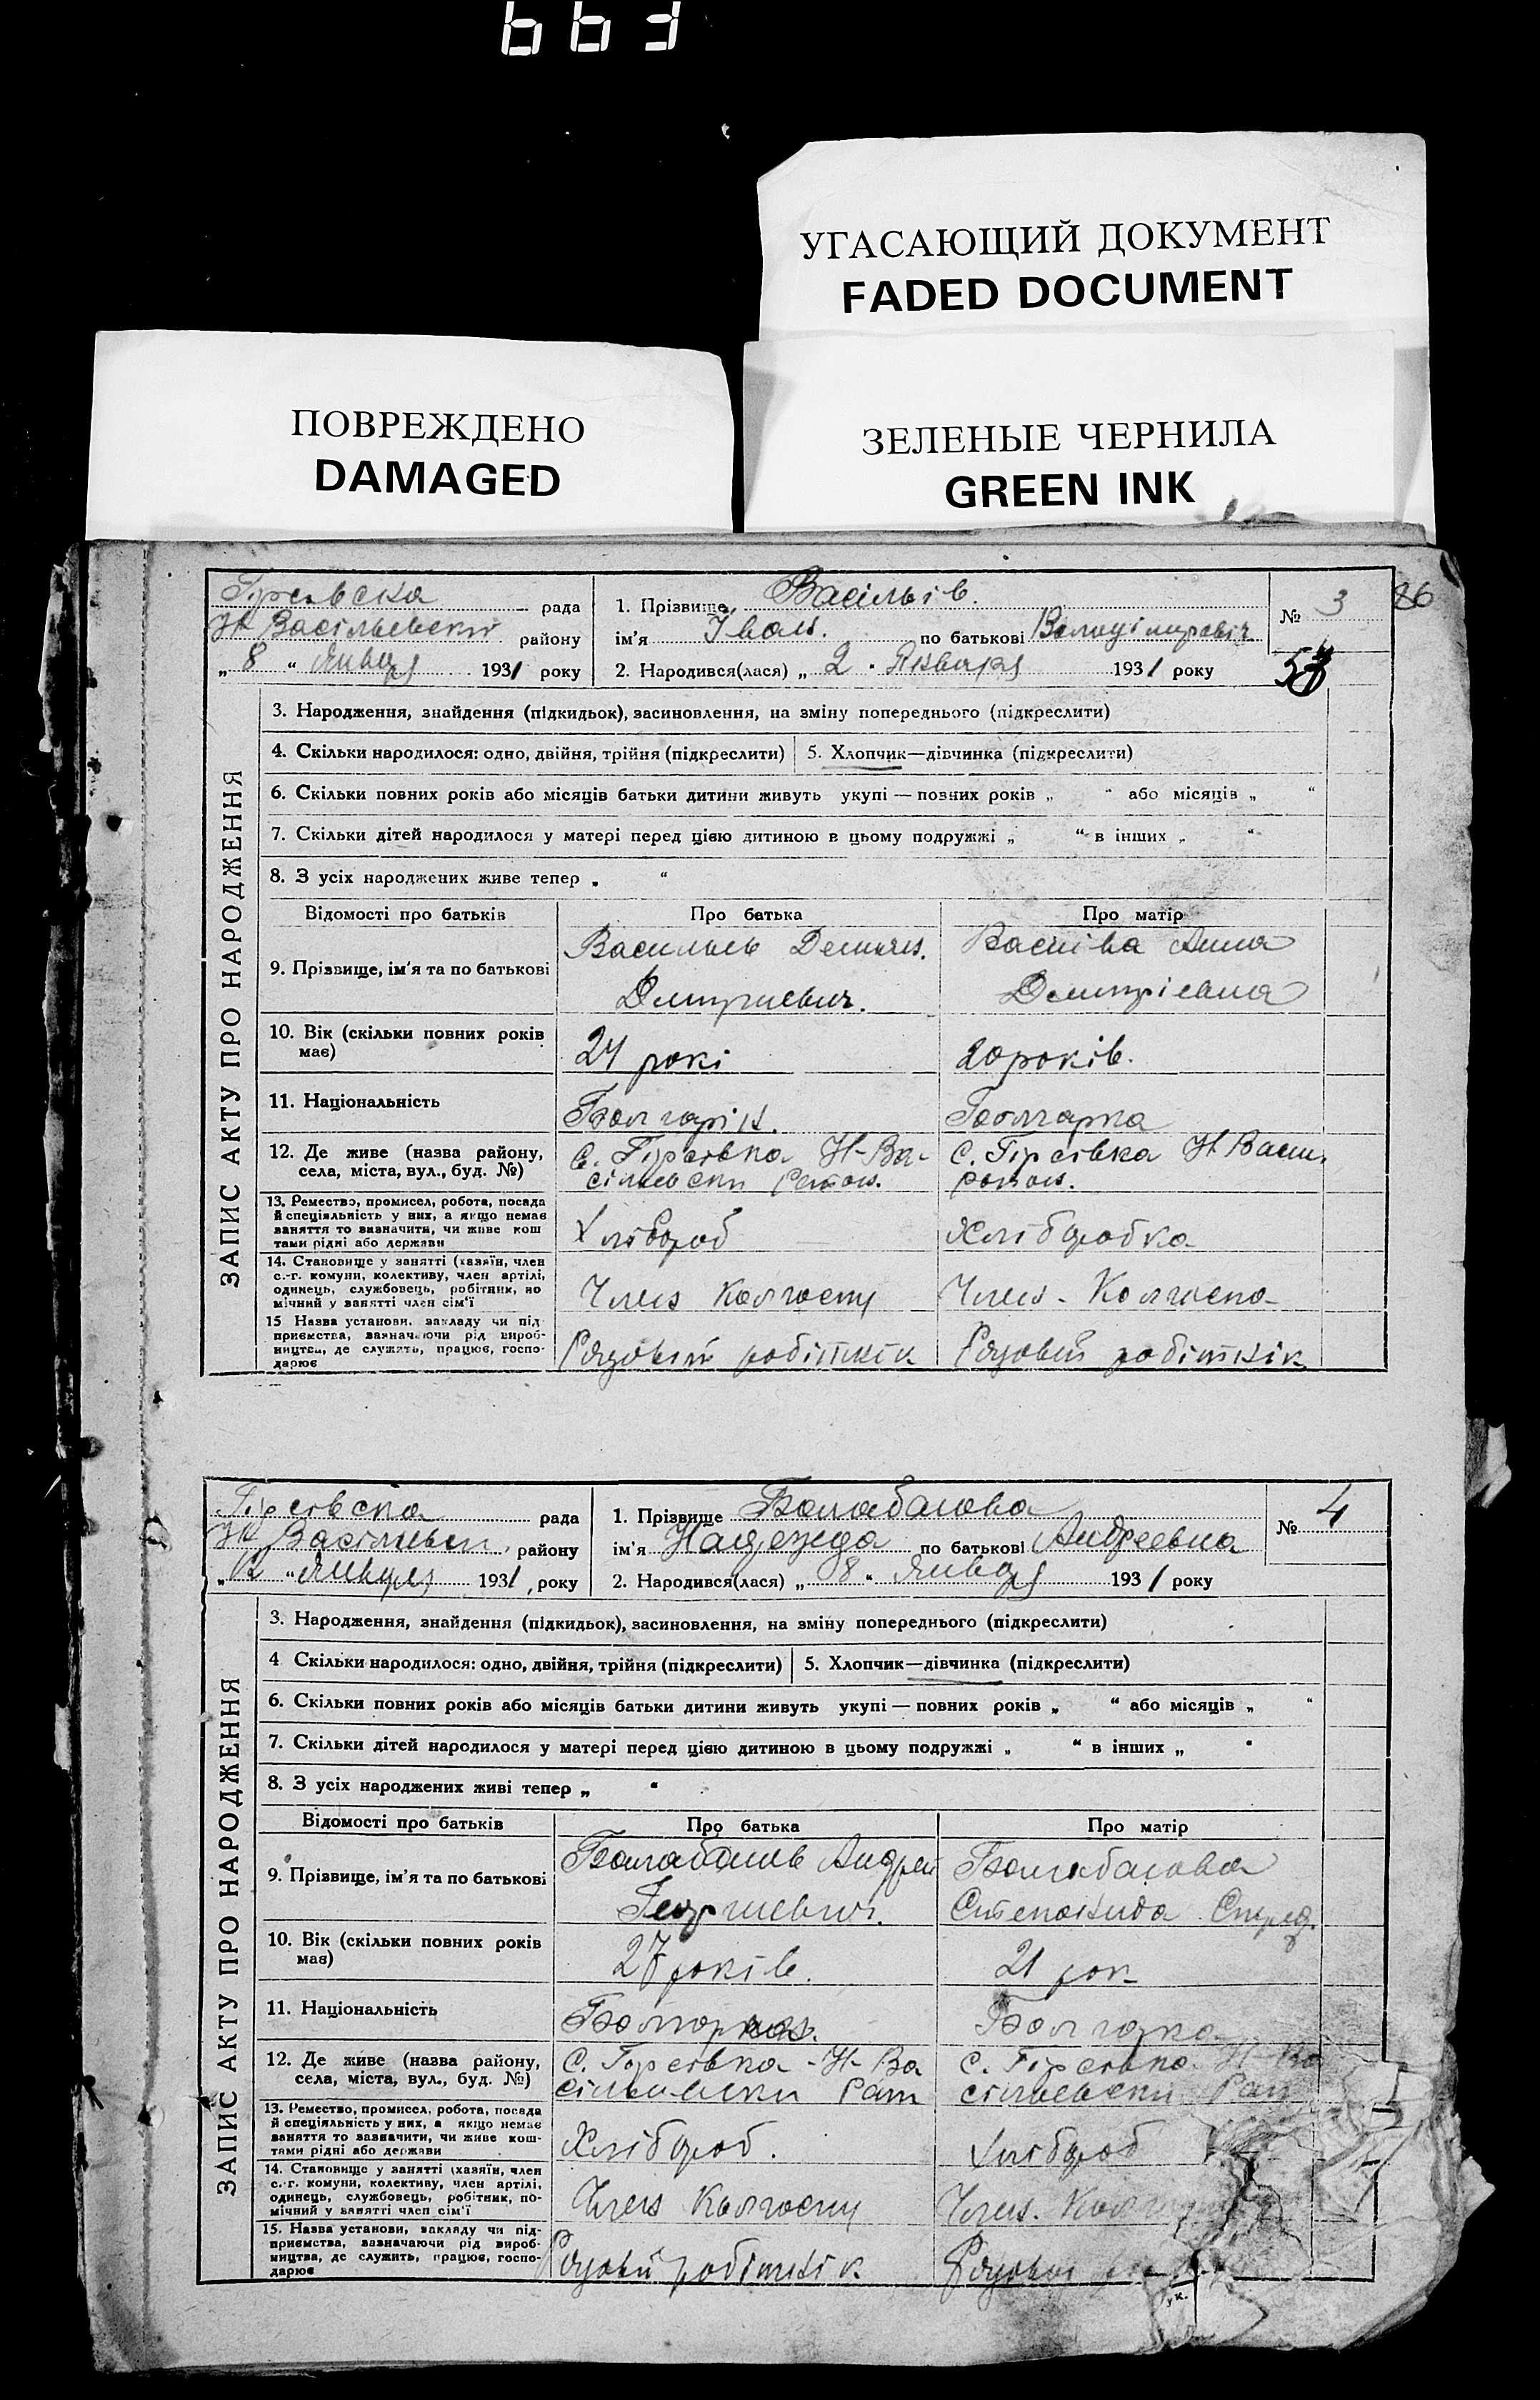 УГАСАЮЩИЙ ДОКУМЕНТ
FADED DOCUMENT
ПОВРЕЖДЕНО
DAMAGED
ЗЕЛЕНЫЕ ЧЕРНИЛА
GREEN INK
86
рада
Васільевски району
„ 8 “ Январ 1931 року
1. Прізвище Васільів.
ім'я Іван. по батькові
2. Народився(лася) „ 2 " Января 1931 року
№ 3
ЗАПИС АКТУ ПРО НАРОДЖЕННЯ
3. Народження, знайдення (підкидьок), засиновлення, на зміну попереднього (підкреслити)
4. Скільки народилося: одно, двійня, трійня (підкреслити) 5. Хлопчик—дівчинка (підкреслити)
6. Скільки повних років або місяців батьки дитини живуть укупі — повних років „ “ або місяців „ “
7. Скільки дітей народилося у матері перед цією дитиною в цьому подружжі „ “ в інших „ “
8. З усіх народжених живе тепер „ “
Відомості про батьків Про батька Про матір
9. Прізвище, ім'я та по батькові
Васильев Демьян. Анна
Дмитриевич. Дмитріевна
10. Вік (скільки повних років
має)
24 рокі 20 років.
11. Національність
Болгарін. Болгарка
12. Де живе (назва району,
села, міста, вул., буд. №)
с. Гірсівка Н-Ва- с. Гірсівка Н Васи.
сільевски район.
13. Ремество, промисел, робота, посада
й спеціяльність у них, а якщо немає
заняття то визначити, чи живе кош
тами рідні або держави
Хлібороб Хліборобка
14. Становище у занятті (хазяїн, член
с.-г. комуни, колективу, член артілі,
одинець, службовець, робітник, по
мічний у занятті член сім'ї
Член Колгоспу Член - Колгоспа-
15 Назва установи, закладу чи під
приємства, зазначаючи рід вироб-
ництва, де служить, працює, госпо-
дарює
Рядовый робітнік Рядовий робітнік
Гірсівска рада
Васільевски району
„ 12 “ Январ 1931, року
1. Прізвище Балабанова
ім'я Надежда по батькові Андреевна
2. Народився(лася) „ 8 “ Январ 1931 року
№ 4
ЗАПИС АКТУ ПРО НАРОДЖЕННЯ
3. Народження, знайдення (підкидьок), засиновлення, на зміну попереднього (підкреслити)
4 Скільки народилося: одно, двійня, трійня (підкреслити) 5. Хлопчик—дівчинка (підкреслити)
6. Скільки повних років або місяців батьки дитини живуть укупі — повних років „ “ або місяців „ “
7. Скільки дітей народилося у матері перед цією дитиною в цьому подружжі „ “ в інших „ “
8. З усіх народжених живі тепер „ “
Відомості про батьків Про батька Про матір
9. Прізвище, ім'я та по батькові
Андрей Балабанова
Георгиевич. Степанида
10. Вік (скільки повних років
має)
27 років. 21 рок
11. Національність
Болгарка
12. Де живе (назва району,
села, міста, вул., буд. №)
С. Гірсівка - Н-Ва с. Гірсівка Н-Ва
сільевски Рай сільевски Рай
13. Ремество, промисел, робота, посада
й спеціяльність у них, а якщо немає
заняття то зазначити, чи живе кош-
тами рідні або держави
Хлібороб. Хлібороб
14. Становище у занятті (хазяїн, член
с.-г. комуни, колективу, член артілі,
одинець, службовець, робітник, по-
мічний у занятті член сім'ї
Член Колгоспу Член.
15. Назва установи, закладу чи під-
приємства, зазначаючи рід вироб-
ництва, де служить, працює, госпо-
дарює
Рядовий робітнік Рядовий